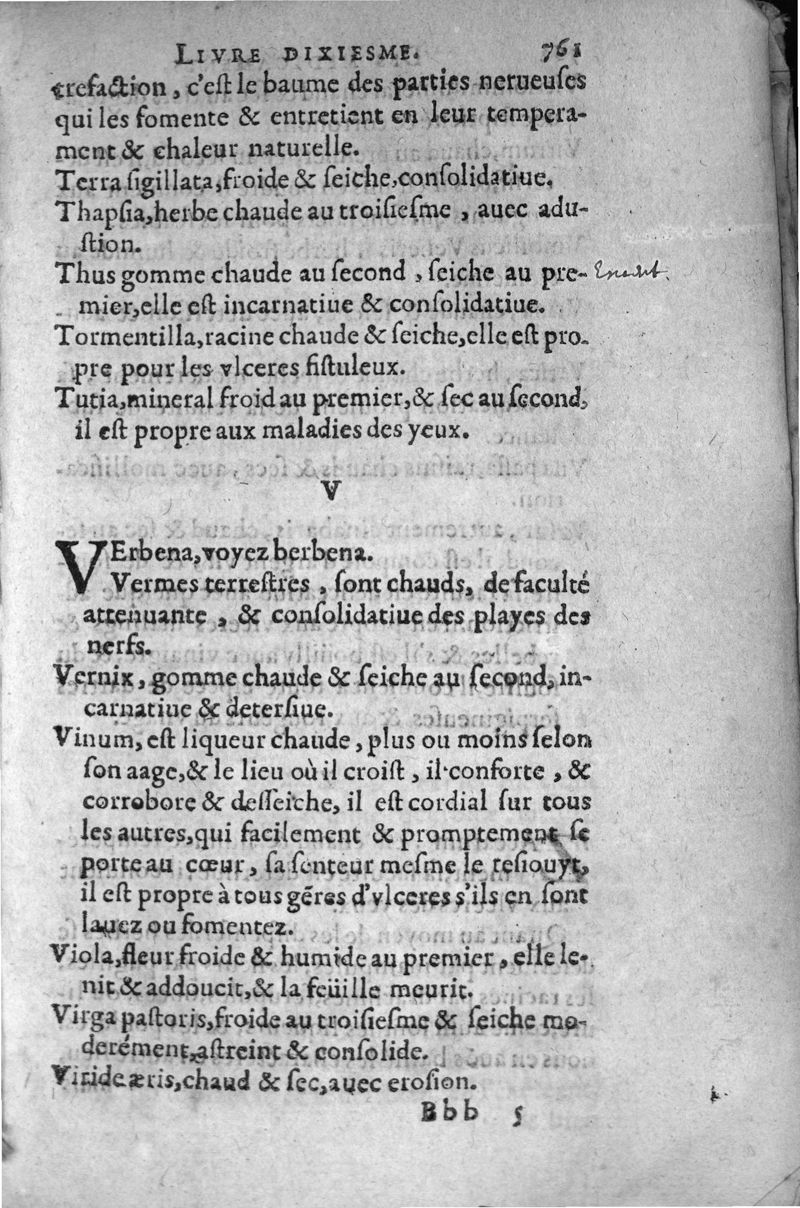 LIVRE DIXIESME. 761
trefaction, c'eſt le baume des parties nerueuſes
qui les fomente & entretient en leur tempera-
ment & chaleur naturelle.
Terra ſigillata, froide & ſeiche, conſolidatiue.
Thapſia, herbe chaude au troiſieſme, auec adu-
ſtion.
Thus gomme chaude au ſecond, ſeiche au pre-
mier, elle eſt incarnatiue & conſolidatiue.
Tormentilla, racine chaude & ſeiche, elle eſt pro-
pre pour les vlceres fiſtuleux.
Tutia, mineral froid au premier, & ſec au ſecond,
il eſt propre aux maladies des yeux.
V
VErbena, voyez berbena.
Vermes terreſtres, ſont chauds, de faculté
attenuante, & conſolidatiue des playes des
nerfs.
Vernix, gomme chaude & ſeiche au ſecond, in-
carnatiue & deterſiue.
Vinum, eſt liqueur chaude, plus ou moins ſelon
ſon aage, & le lieu où il croiſt, il conforte, &
corrobore & deſſeiche, il eſt cordial ſur tous
les autres, qui facilement & promptement ſe
porte au cœur, ſa ſenteur meſme le reſiouyt,
il eſt propre à tous gẽres d'vlceres s'ils en ſont
lauez ou fomentez.
Viola, fleur froide & humide au premier, elle le-
nit & addoucit, & la feüille meurit.
Virga paſtoris, froide au troiſieſme & ſeiche mo-
derément, aſtreint & conſolide.
Viride æris, chaud & ſec, auec eroſion.
Bbb 5